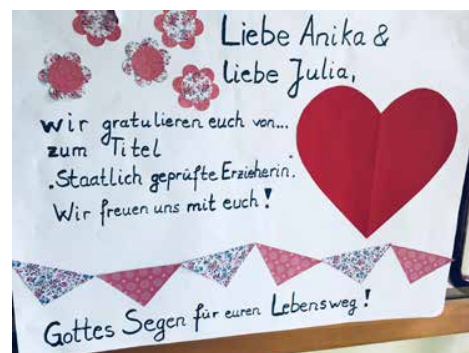 Liebe Anika &
liebe Julia,
wir gratulieren euch von...
zum Titel
„Staatlich geprüfte Erzieherin“.
Wir freuen uns mit euch!
Gottes Segen für euren Lebensweg!